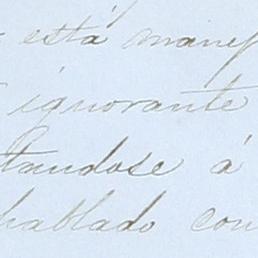 está manej
ignorante
tandose á
hablado con